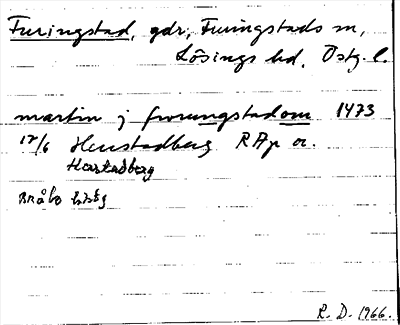 Furingstad, gdr, Furingstads sn,
Lösings hd, Östg. l.
martin j froringstadom 1473
17/6 Herrstadberg RAp or.
Harstadberg
Bråbo häg
R. D. 1966.